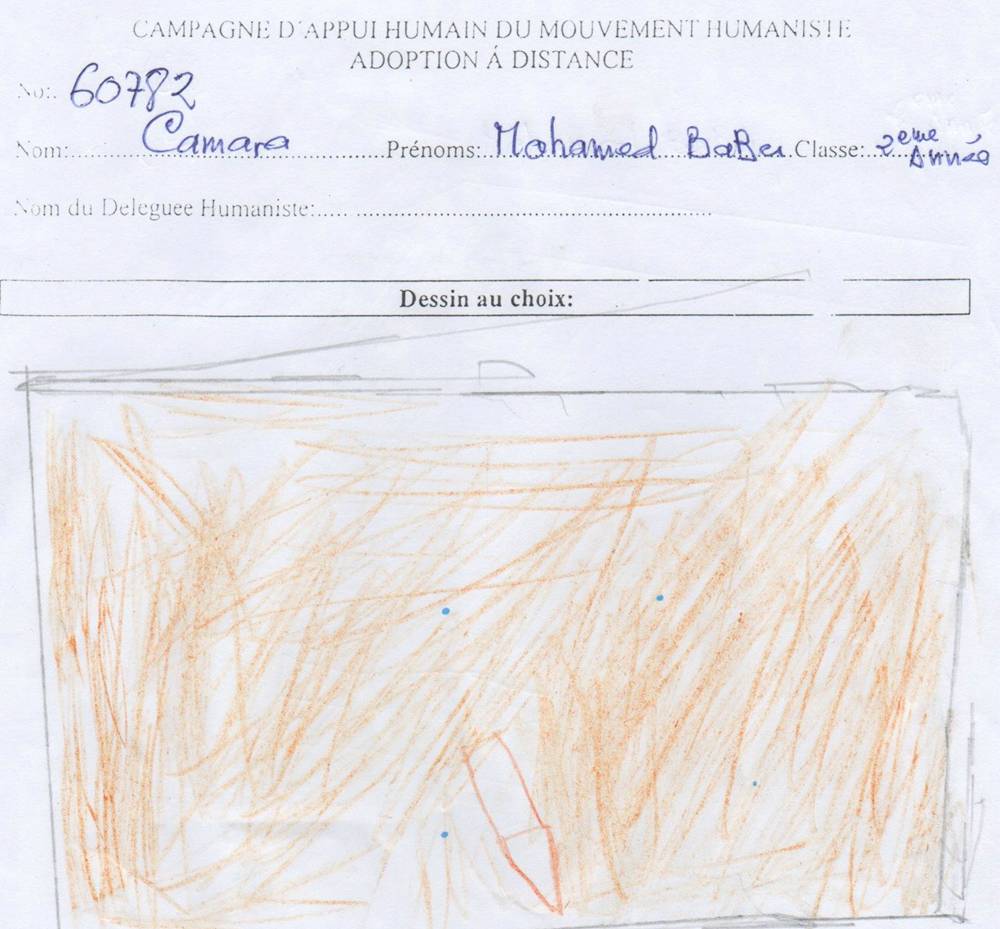 CAMPAGNE D'APPUI HUMAIN DU MOUVEMENT HUMANISTE
ADOPTION Á DISTANCE
No:. 60782
Nom:...Camara...Prénoms:..Mohamed BaBeu.Classe:..2eme Année
Nom du Deleguee Humaniste:..... ............................................................
Dessin au choix: